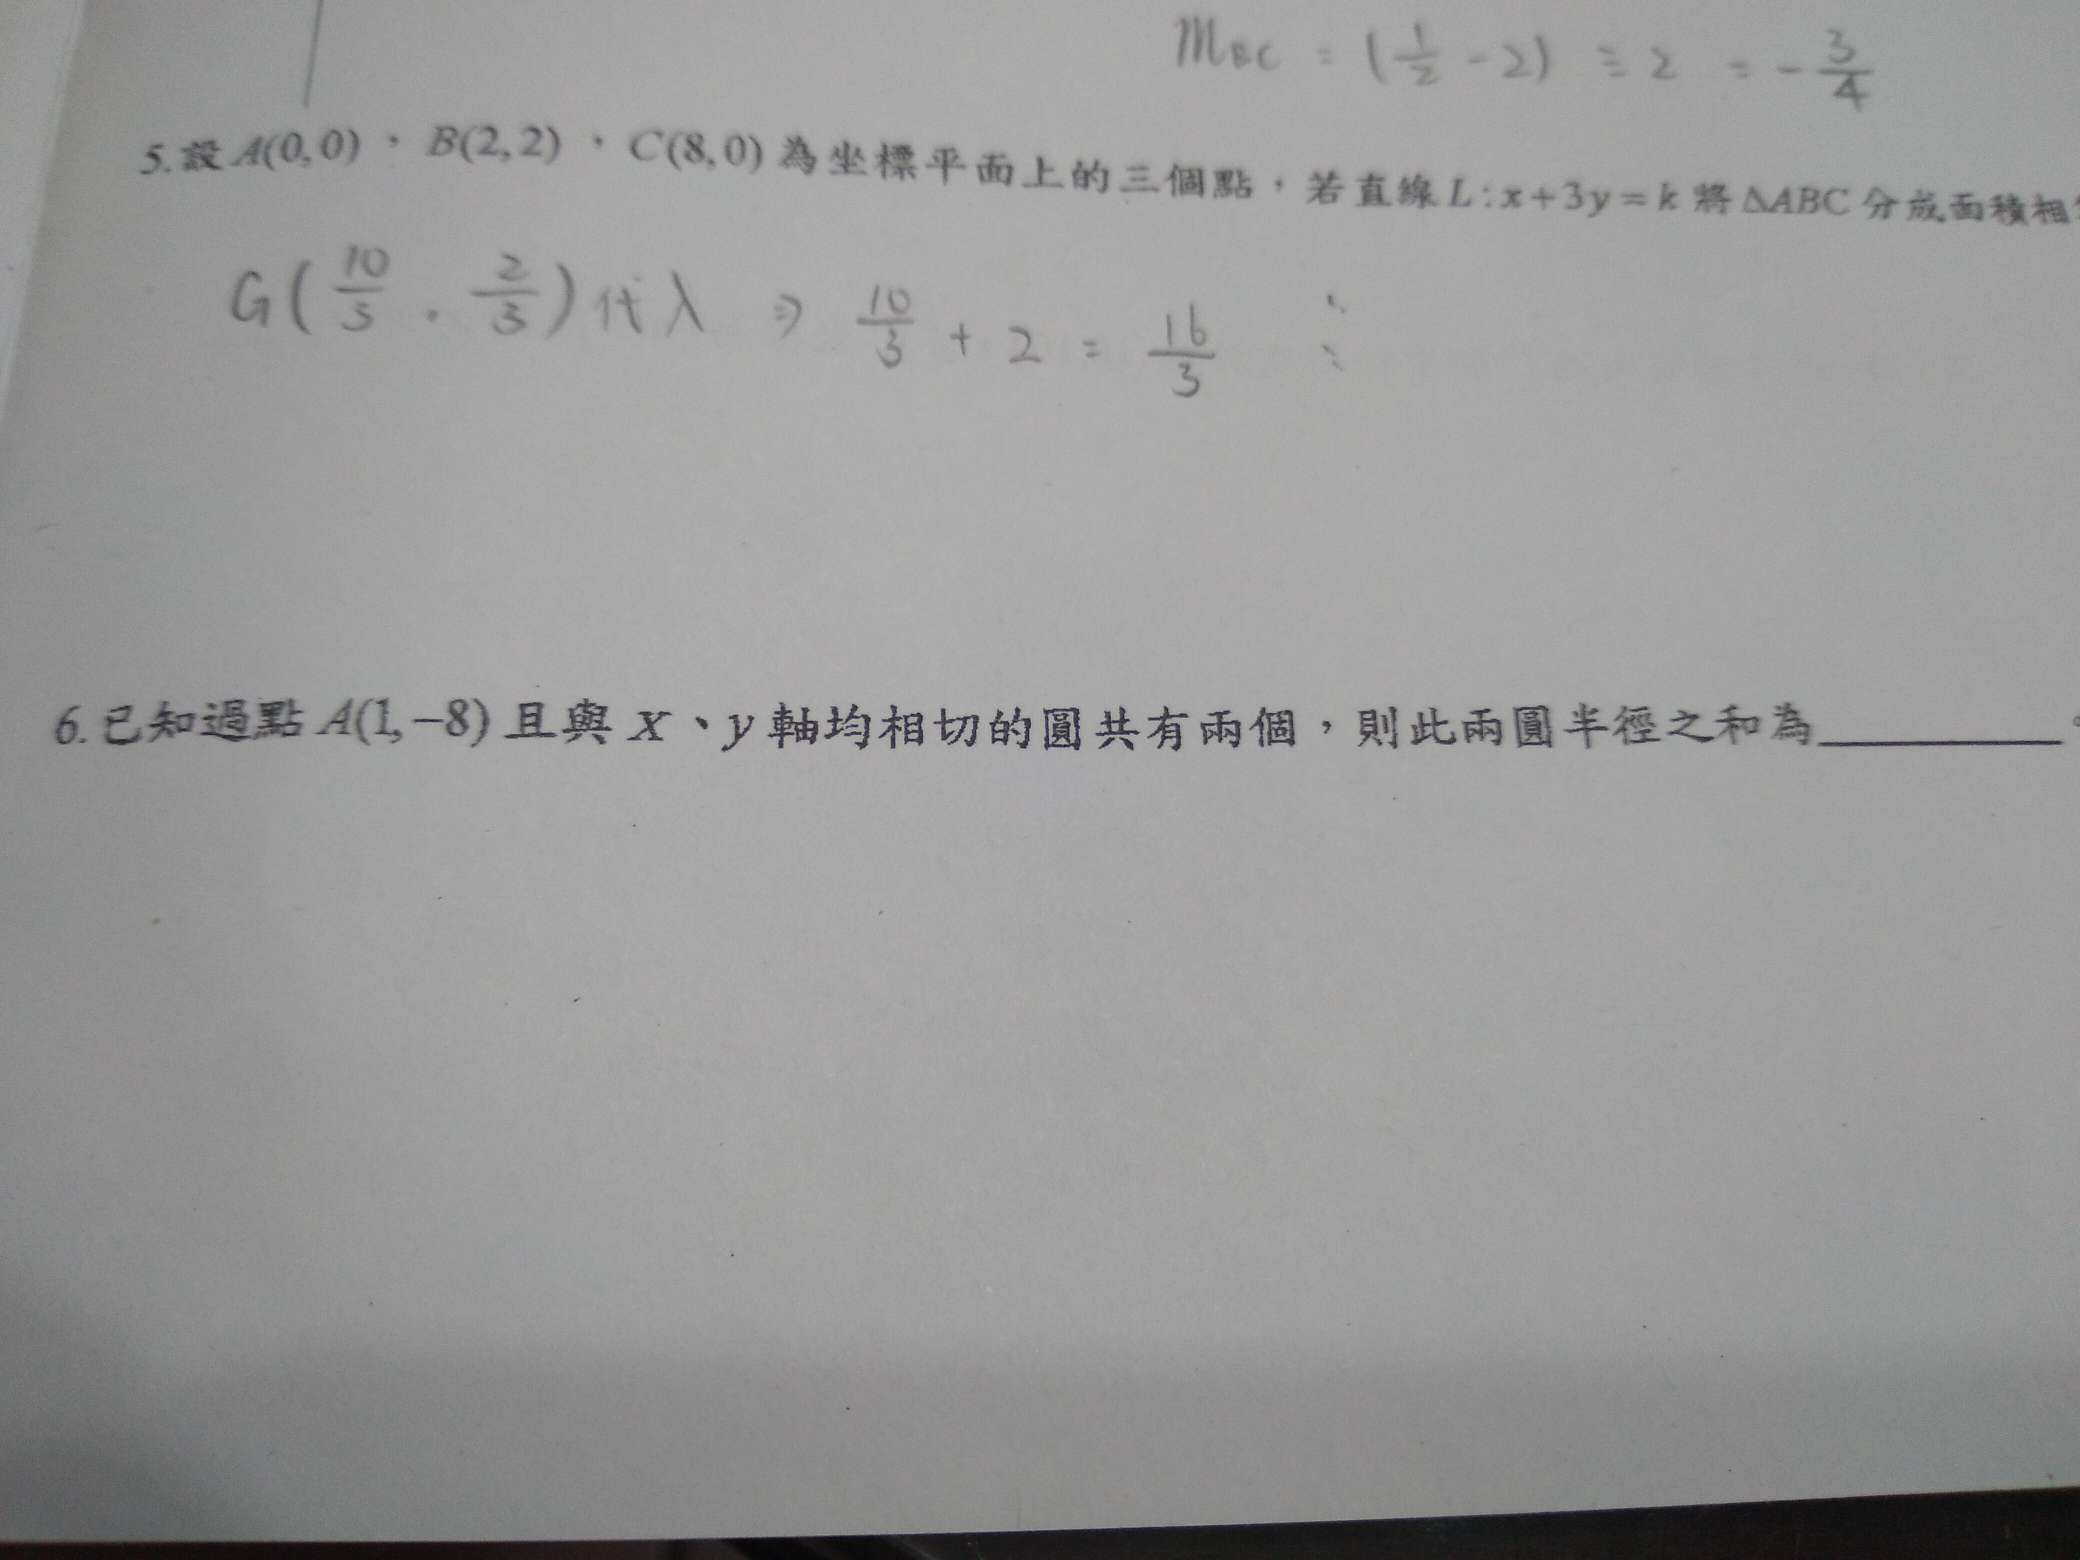 m_BC = (1/2 - 2) ÷ 2 = -3/4
5. 設 A(0,0)，B(2,2)，C(8,0) 為坐標平面上的三個點，若直線 L:x+3y=k 將 ΔABC 分成面積相
G(10/3, 2/3) 代入 ⇒ 10/3 + 2 = 16/3
6. 已知過點 A(1,−8) 且與 x、y 軸均相切的圓共有兩個，則此兩圓半徑之和為________。